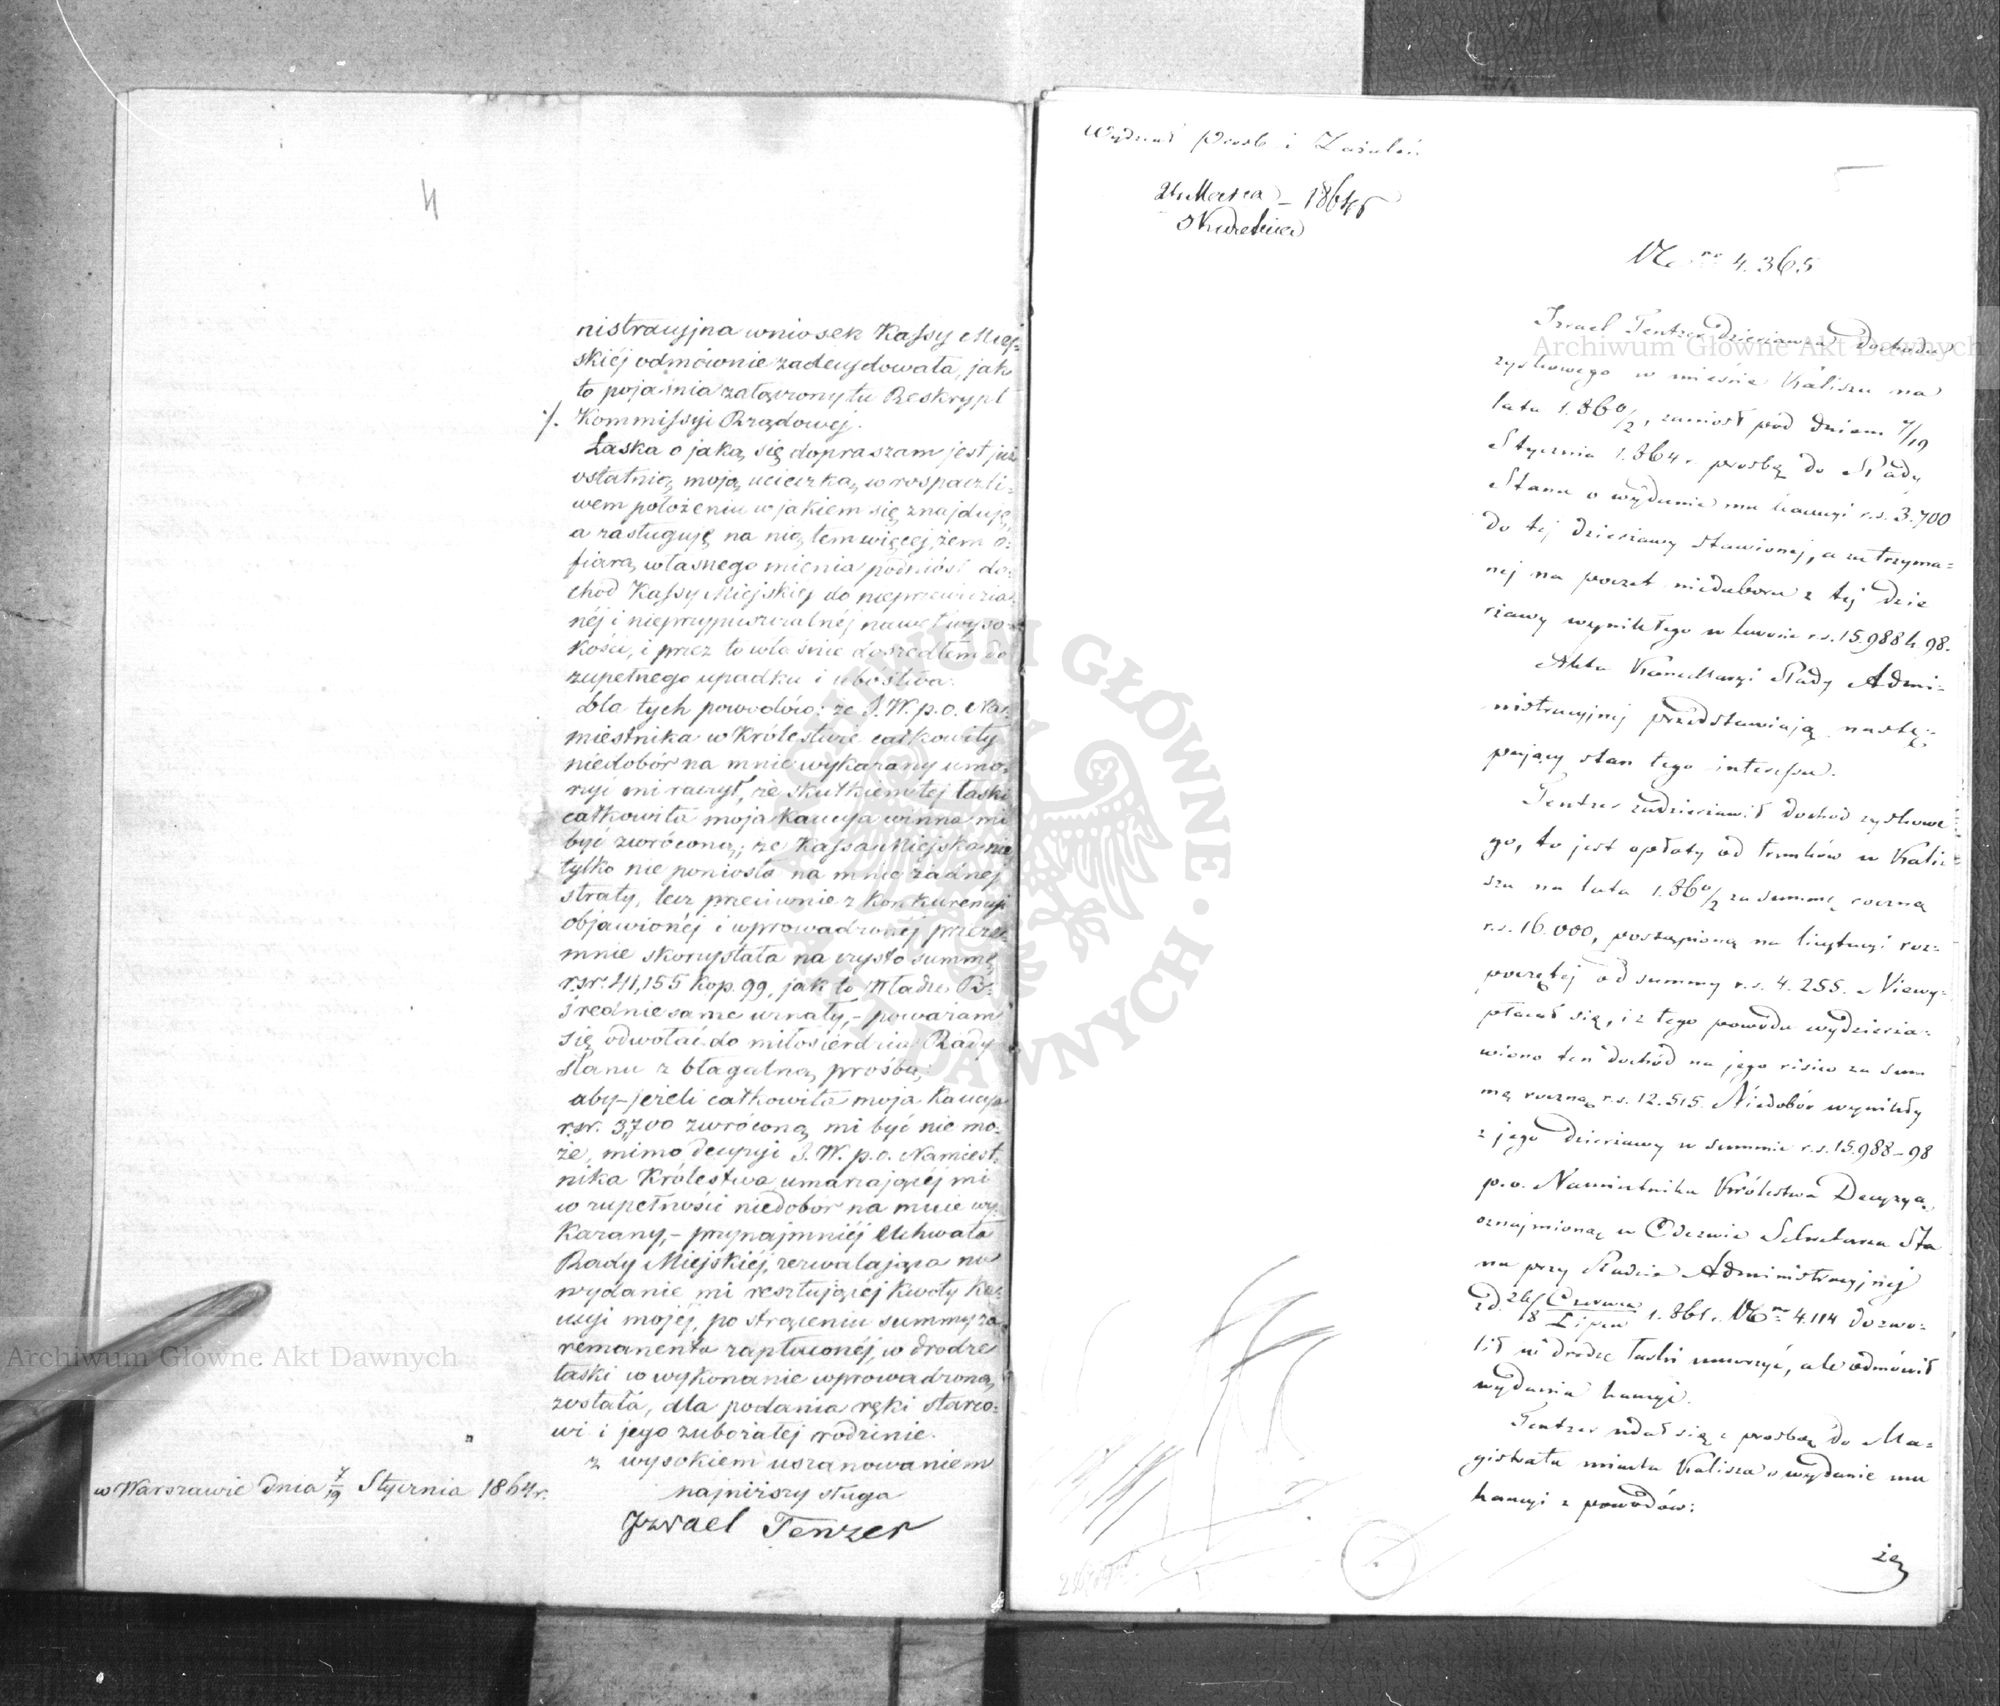 4
nistracyjna wniosek Kassy Miej-
skiéj odmównie zadecydowała, jak
to pojaśnia załączony tu Reskrypt
./. Kommissyi Rządowej.
Łaska o jaką się dopraszam jest już
ostatnią moją ucieczką w rospaczli-
wem położeniu w jakiem się znajduję,
a zasługuję na nią tem więcej, żem o-
fiarą własnego mienia podniósł do-
chod Kassy Miejskiej do nieprzewidzia-
néj i nieprzypuszczalnéj nawet wyso-
kości, i przez to właśnie doszedłem do
zupełnego upadku i ubóstwa.
Dla tych powodów: że J.W. p.o. Na-
miestnika w Królestwie całkowity
niedobór na mnie wykazany umo-
rzyć mi raczył, że skutkiem tej łaski
całkowita moja kaucya winna mi
być zwróconą; że Kassa Miejska nie
tylko nie poniosła na mnie żadnej
straty, lecz przeciwnie z konkurencyi
objawionéj i wprowadzonéj przeze-
mnie skorzystała na czysto summę
rsr. 41,155 kop. 99, jak to Władze Po-
średnie same uznały, – poważam
się odwołać do miłosierdzia Rady
Stanu z błagalną prośbą;
aby – jeżeli całkowita moja kaucya
rsr. 3,700 zwróconą mi być nie mo-
że, mimo decyzyi J.W. p.o. Namiest-
nika Królestwa umarzającéj mi
w zupełności niedobór na mnie wy-
kazany, – przynajmniéj Uchwała
Rady Miejskiéj, zezwalająca na
wydanie mi resztującéj kwoty kau-
cyi mojéj, po strąceniu summy za
remanenta zapłaconéj, w drodze
łaski w wykonanie wprowadzoną
została, dla podania ręki starco-
wi i jego zubożałej rodzinie.
z wysokiem uszanowaniem
najniższy sługa
w Warszawie dnia 7/19 Stycznia 1864 r.
Izrael Tenzer
Wydział Prosb i Zażaleń
Marca – 1864 r
5
No 4.365
Izrael Tentzer dzierżawca dochodu
zyskowego w mieście Kaliszu na
lata 1.860/2, zaniosł pod dniem 7/19
Stycznia 1.864 r. prośbę do Rady
Stanu o wydanie mu kaucyi r.s. 3.700
do tej dzierżawy stawionej, a zatrzyma-
nej na poczet niedoboru z tej dzie
rżawy wynikłego w kwocie r.s. 15.988 k. 98.
Akta Kancellaryi Rady Admi-
nistracyjnej przedstawiają nastę-
pujący stan tego interessu.
Tentzer zadzierżawił dochod zyskowe
go, to jest opłaty od trunków w Kali-
szu na lata 1.860/2 za summę roczną
r.s. 16.000, postąpioną na licytacyi roz-
poczętej od summy r.s. 4.255. Niewy-
płacał się, i z tego powodu wydzierża-
wiono ten dochód na jego risico za sum
mę roczną r.s. 12.515. Niedobór wynikły
z jego dzierżawy w summie r.s. 15.988–98
p.o. Namiestnika Królestwa Decyzyą,
oznajmioną w Odezwie Sekretarza Sta
nu przy Radzie Administracyjnej
z d. 26/8 Czerwca/Lipca 1.861 r. No 4.114 dozwo-
lił w drodze łaski umorzyć, ale odmówił
wydania kaucyi.
Tentzer udał się z prosbą do Ma-
gistratu miasta Kalisza o wydanie mu
kaucyi z powodów:
że
Archiwum Główne Akt Dawnych
Archiwum Główne Akt Dawnych
ARCHIWUM GŁÓWNE AKT DAWNYCH